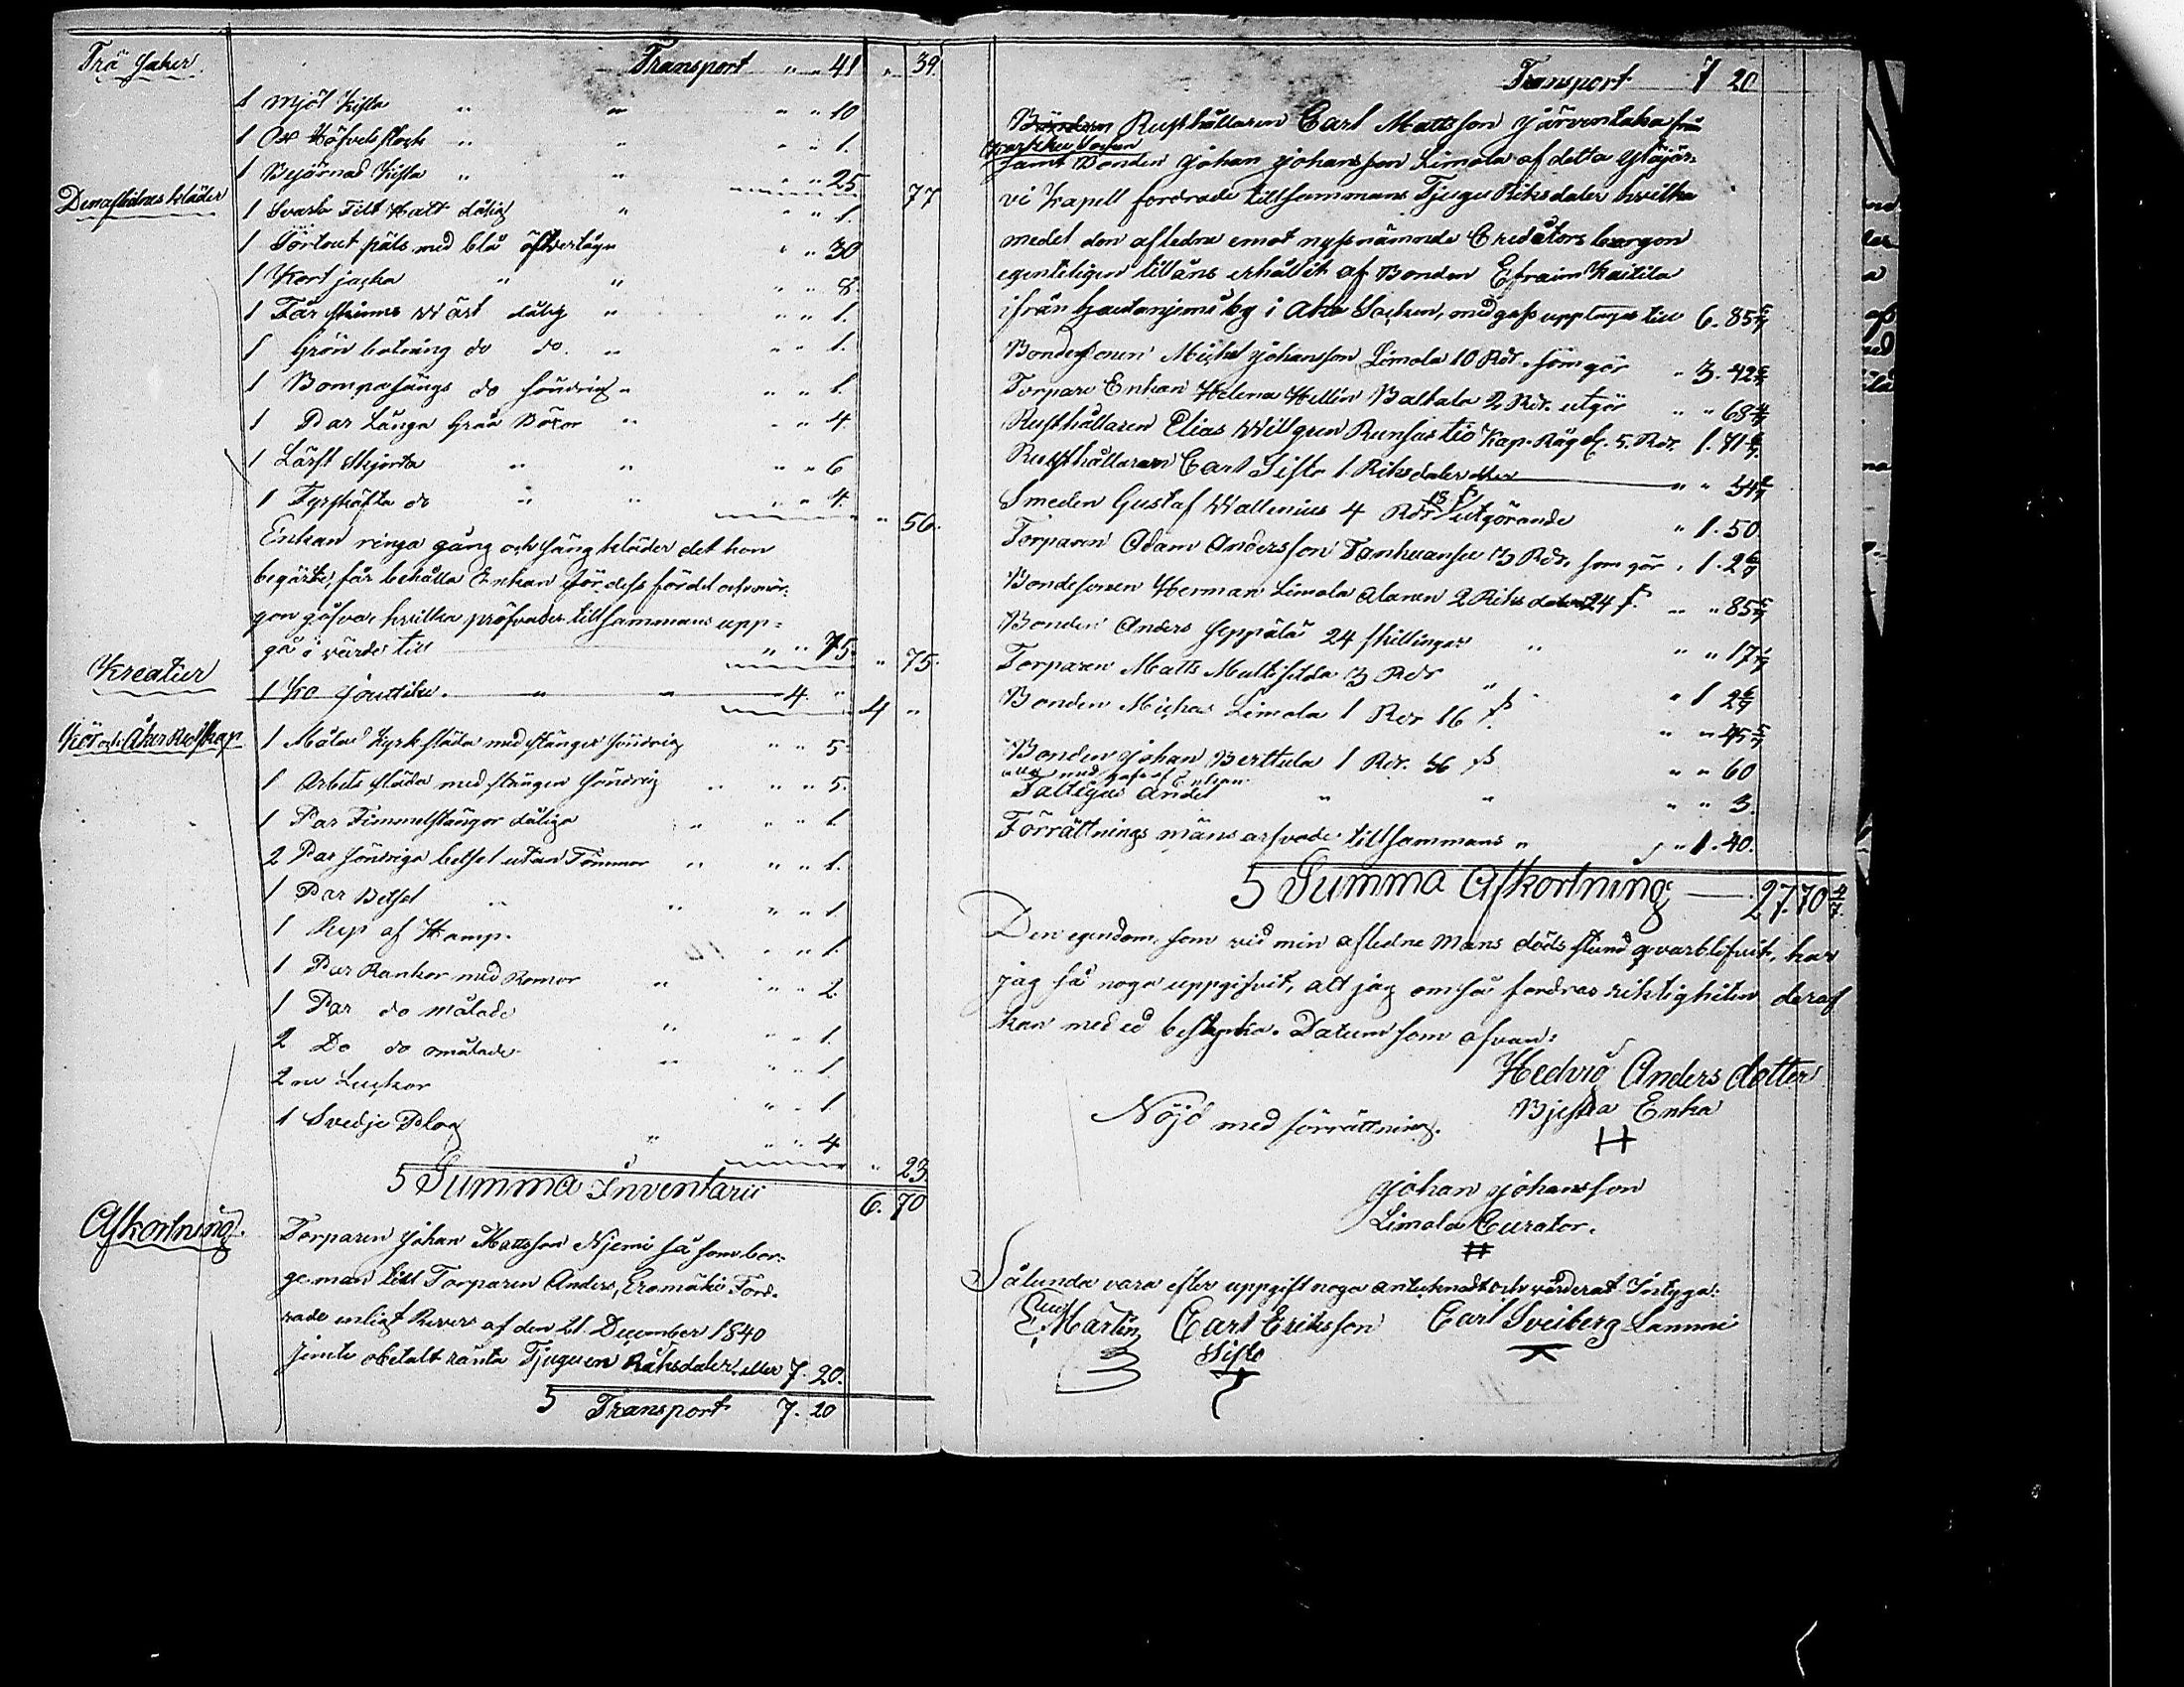 Trä Saker Transport " " 41 " 39.
1 Mjöl Kista " " " " 10
1 Ox Höfvelstock " " " " 1.
1 Bejärnad Kista " " " " 25 77
Den aflidnes kläder
1 Svart Filt Hatt dålig " " " 1.
1 Sörtout päls med blå öfvertåg " " 30
1 Kort jacka " " " " 8.
1 Får skinns Wäst dålig " " " 1.
1 Grön do do. " " " 1.
1 Bompasängs do söndrig " " " 1.
1 Par Långa Gråa Böxor " " " 4.
1 Lärft Skjorta " " " " 6
1 Fyrskäfta do " " " " 4. " 56.
Enkan ringa gång och sängkläder det hon
begärte, får behålla Enkan för dess fördel och mor-
gon gåfva, hvilka pröfvades tillsammans upp-
gå i värde till " " 75. " 75.
Kreatur
1 Ko Jouttika. " " 4. " 4 "
Kör och Åker Redskap
1 Målad Kyrk släda med stänger söndrig " " 5.
1 Arbets släda med stänger söndrig " " " 5.
1 Par Timmelstängor dåliga " " " 1.
2 Par söndriga betsel utan Tömmar " " " 1.
1 Par Betsel " " " " 1.
1 Rep af Hamp. " " 1.
1 Par Rankor med Remor " " " 2.
1 Par do målade " " " 1.
2 Do do omålade " " " 1.
2 Luckor " " 1
1 Svedje Plog " " " 4 " 23.
S Summa Inventarii 6. 70
Afkortning.
Torparen Johan Mattsson Njemi så som bor-
ges man till Torparen Anders Eromäki Ford-
rade enligt Revers af den 21. December 1840
jemte obetalt ränta Tjuguen Riksdaler, eller 7. 20.
S Transport 7. 20
Transport 7 20
Bonden Rusthållaren Carl Mattsson Järventaka från
Socken
samt Bonden Johan Johansson Limola af detta Ylöjär-
vi Kapell fordrade tillsammans Tjugu Riksdaler hvilka
medel den afledne emot nyssnämnde Creditors borgen
egenteligen tilläns erhållit af Bonden Efraim Kaitila
ifrån by i Socken, medgafs upptagas till 6. 85 5/7
Bondesonen Michel Johansson Limola 10 Rdr. som gör " 3. 42 6/7
Torpare Enkan Helena Hellin Baltala 2 Rdr. utgör " " 68 4/7
Rusthållaren Elias Willgren Runsas tio Kap. Råg á 5. Rdr. 1. 71 3/7
Rusthållaren Carl Sisto 1 Riksdaler eller " " 34 2/7
Smeden Gustaf Wallenius 4 Rdr 18 s utgörande " 1. 50
Torparen Adam Andersson Tanhuanpä 3 Rdr. som gör " 1. 2 6/7
Bondesonen Herman Limola Alanen 2 Riksdaler 24 s. " " 85 5/7
Bonden Anders Seppälä 24 skillingar " " " 17 1/7
Torparen Matts Multisilda 3 Rdr " " 1 2 6/7
Bonden Michel Limola 1 Rdr 16 s. " " 45 5/7
Bonden Johan Berttula 1 Rdr. 36 s " " 60
Fattigas andel " " " " 3.
Förrättnings mäns arfvode tillsammans " " 1. 40.
S Summa Afkortning — 27. 70 4/7.
Den egendom, som vid min afledne Mans dödsstund qvarblifvit, har
jag så noga uppgifvit, att jag om så fordras riktigheten deraf
kan med ed bestyrka. Datum som ofvan:
Hedvig Anders dotter
Enka
H
Nöjd med förrättning.
Johan Johansson
Limola Curator.
#
Sålunda vara efter uppgift noga antecknadt och värderat Intyga:
E. Martin Carl Eriksson Carl Sveiberg Lammi
Sisto